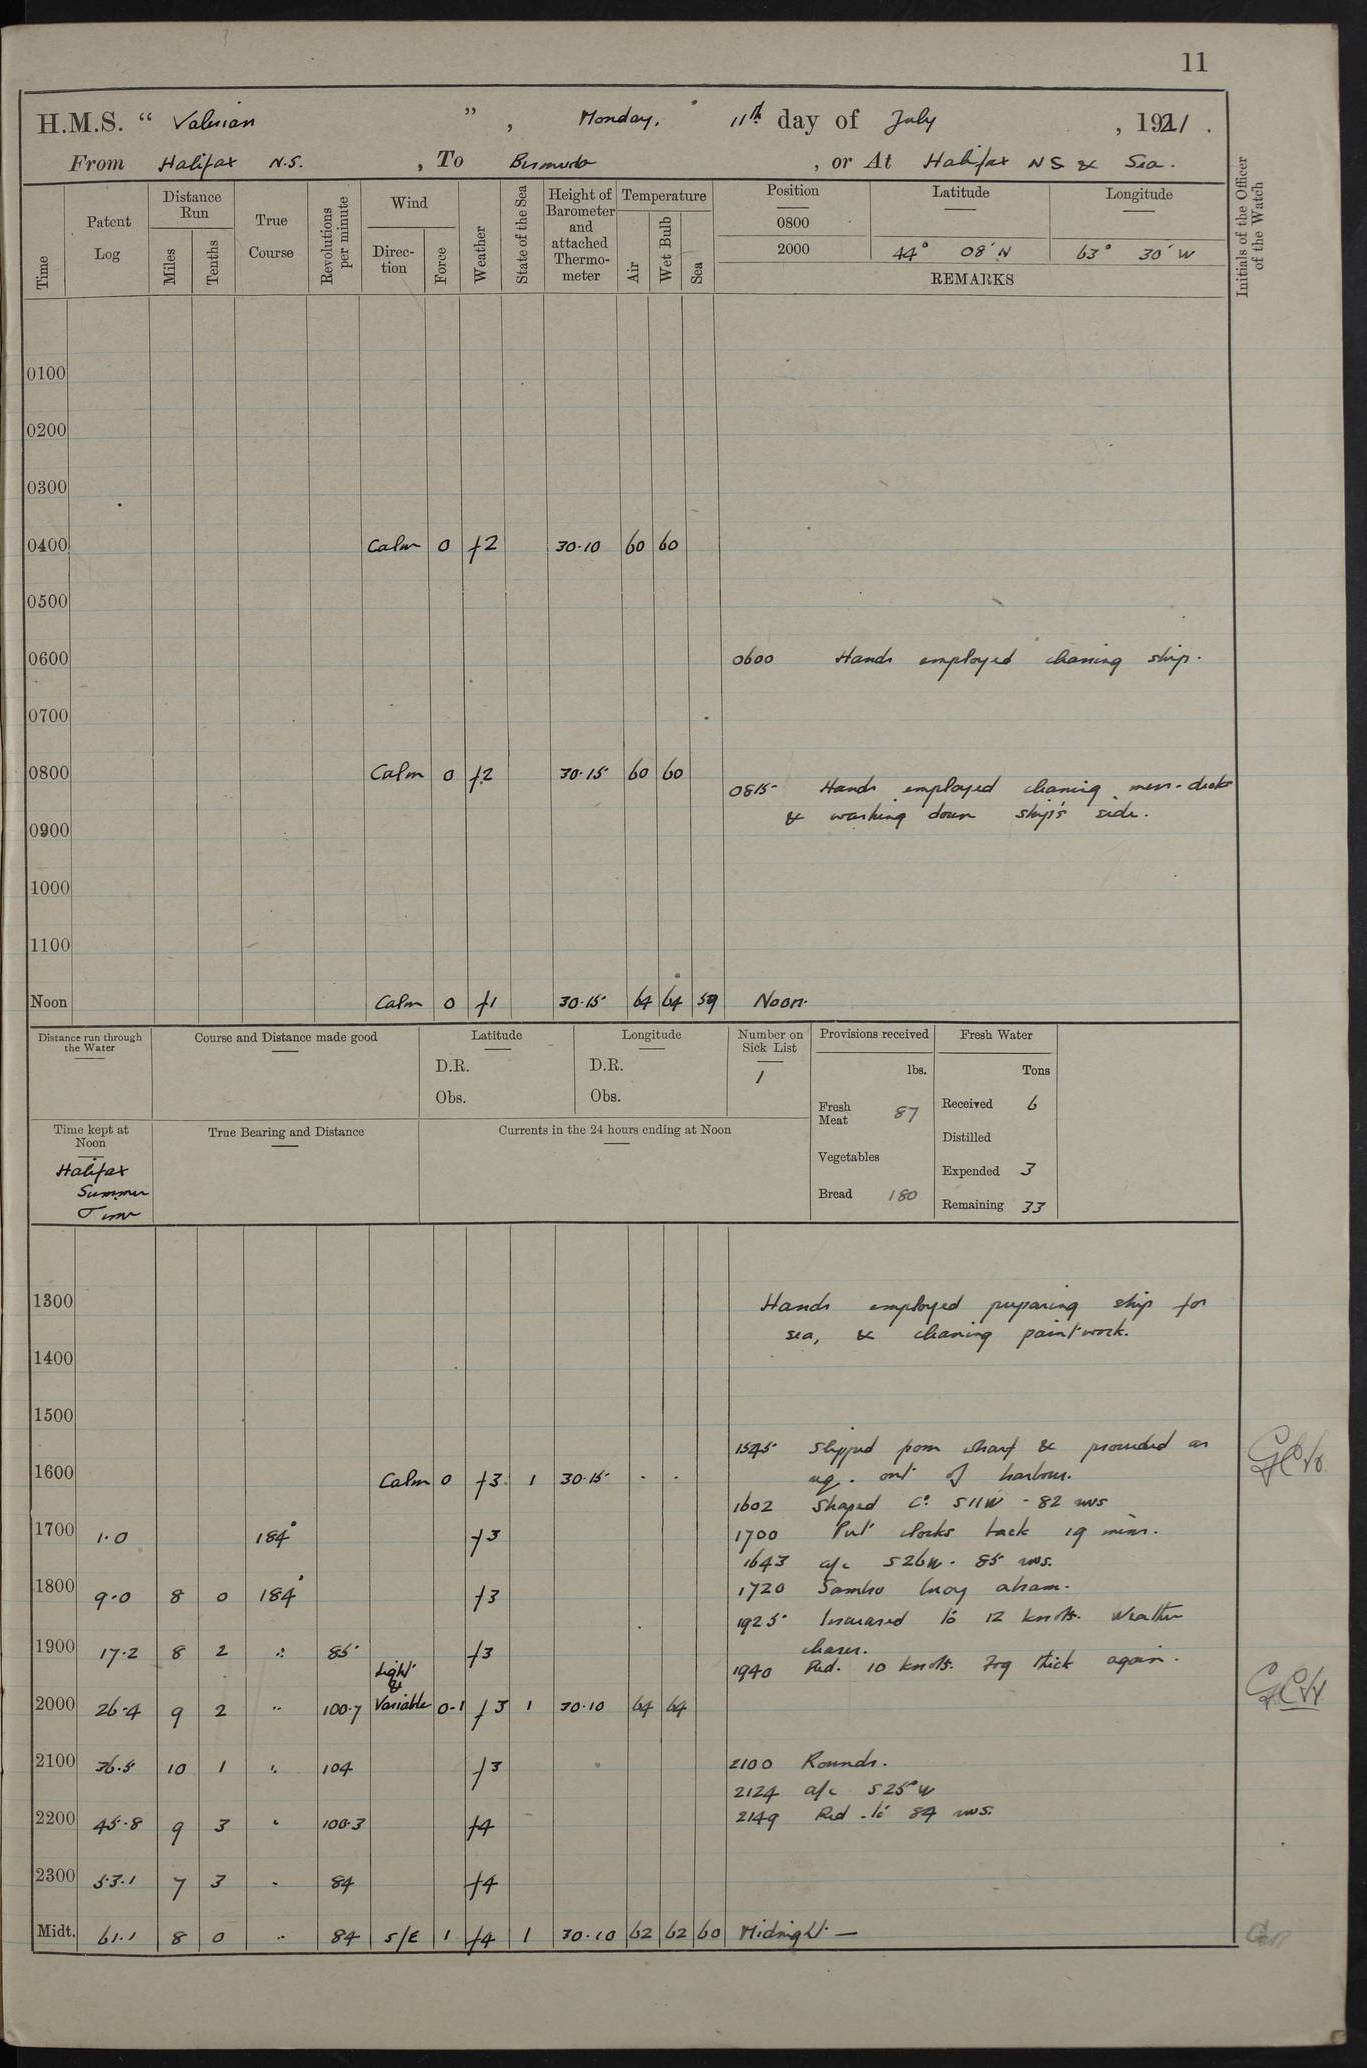 11
H.M.S. “ Valerian ” , Monday, 11th day of July , 1921 .
From Halifax N.S. , To Bermuda , or At Halifax N S & Sea .
Time
Patent Log
Distance Run
Miles
Tenths
True Course
Revolutions per minute
Wind
Direc-tion
Force
Weather
State of the Sea
Height of Barometer and attached Thermo-meter
Temperature
Air
Wet Bulb
Sea
Position Latitude Longitude
0800
2000 44° 08' N 63° 30' W
REMARKS
Initials of the Officer of the Watch
0100
0200
0300
0400 Calm 0 f2 30.10 60 60
0500
0600 0600 Hands employed cleaning ship.
0700
0800 Calm 0 f2 30.15 60 60
0815 Hands employed cleaning mess-decks
& washing down ship's side.
0900
1000
1100
Noon Calm 0 f1 30.15 64 64 59 Noon.
Distance run through the Water
Course and Distance made good
Latitude
D.R.
Obs.
Longitude
D.R.
Obs.
Number on Sick List
1
Provisions received
lbs.
Fresh Meat 87
Vegetables
Bread 180
Fresh Water
Tons
Received 6
Distilled
Expended 3
Remaining 33
Time kept at Noon
Halifax
Summer
Time
True Bearing and Distance
Currents in the 24 hours ending at Noon
1300 Hands employed preparing ship for
sea, & cleaning paintwork.
1400
1500
1545 Slipped from wharf & proceeded as
1600 Calm 0 f3 1 30.15 - - req. out of harbour.
1602 Shaped Co S11W - 82 revs
1700 1.0 184° f3 1700 Put clocks back 19 mins.
1643 a/c S26W - 85 revs.
1800 9.0 8 0 184° f3 1720 Sambro buoy abeam.
1925 Increased to 12 knots. Weather
1900 17.2 8 2 " 85 f3 clearer.
1940 Red. 10 knots. Fog thick again.
Light
&
2000 26.4 9 2 " 100.7 Variable 0-1 f3 1 30.10 64 64
2100 36.5 10 1 " 104 f3 2100 Rounds.
2124 a/c S25°W
2200 45.8 9 3 " 100.3 f4 2149 Red. to 84 revs.
2300 53.1 7 3 " 84 f4
Midt. 61.1 8 0 " 84 S/E 1 f4 1 30.10 62 62 60 Midnight —